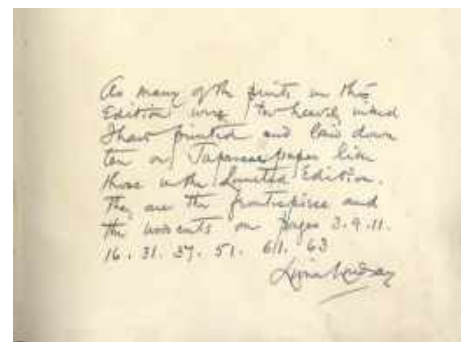 As many of the prints in this
Edition were too heavily inked
I have printed and laid down
ten on Japanese paper like
those in the Limited Edition.
They are the frontispiece and
the woodcuts on pages 3. 9. 11.
16. 31. 37. 51. 61. 63
Lionel Lindsay